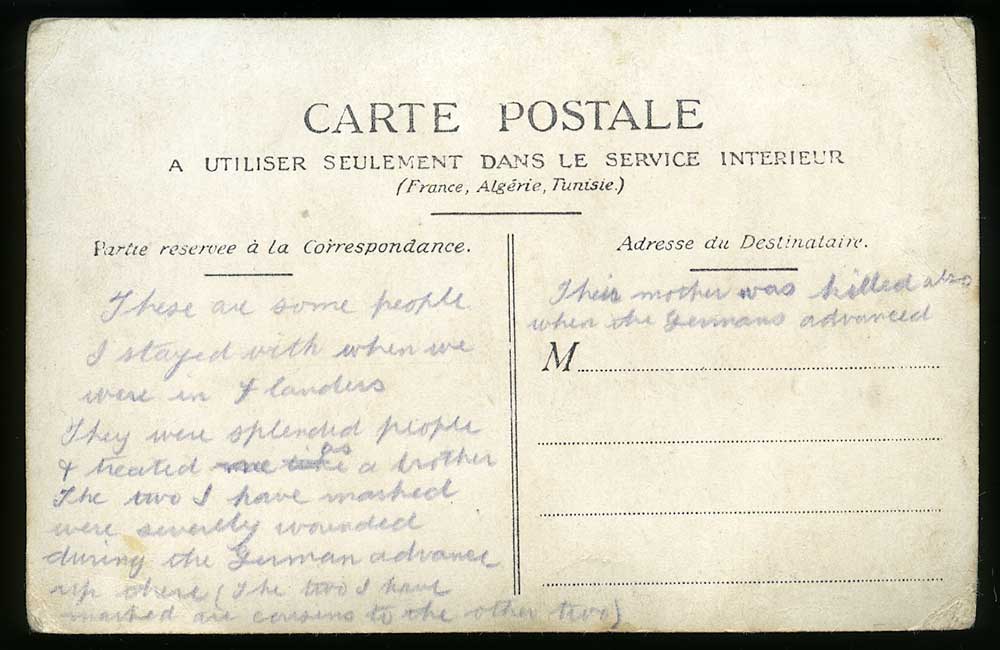 CARTE POSTALE
A UTILISER SEULEMENT DANS LE SERVICE INTERIEUR
(France, Algérie, Tunisie.)
Partie reservee à la Correspondance.
These are some people
I stayed with when we
were in Flanders
They were splendid people
& treated me like as a brother
The two I have marked
were severely wounded
during the German advance
up there (The two I have
marked are cousins to the other two)
Adresse du Destinataire.
Their mother was killed also
when the Germans advanced
M